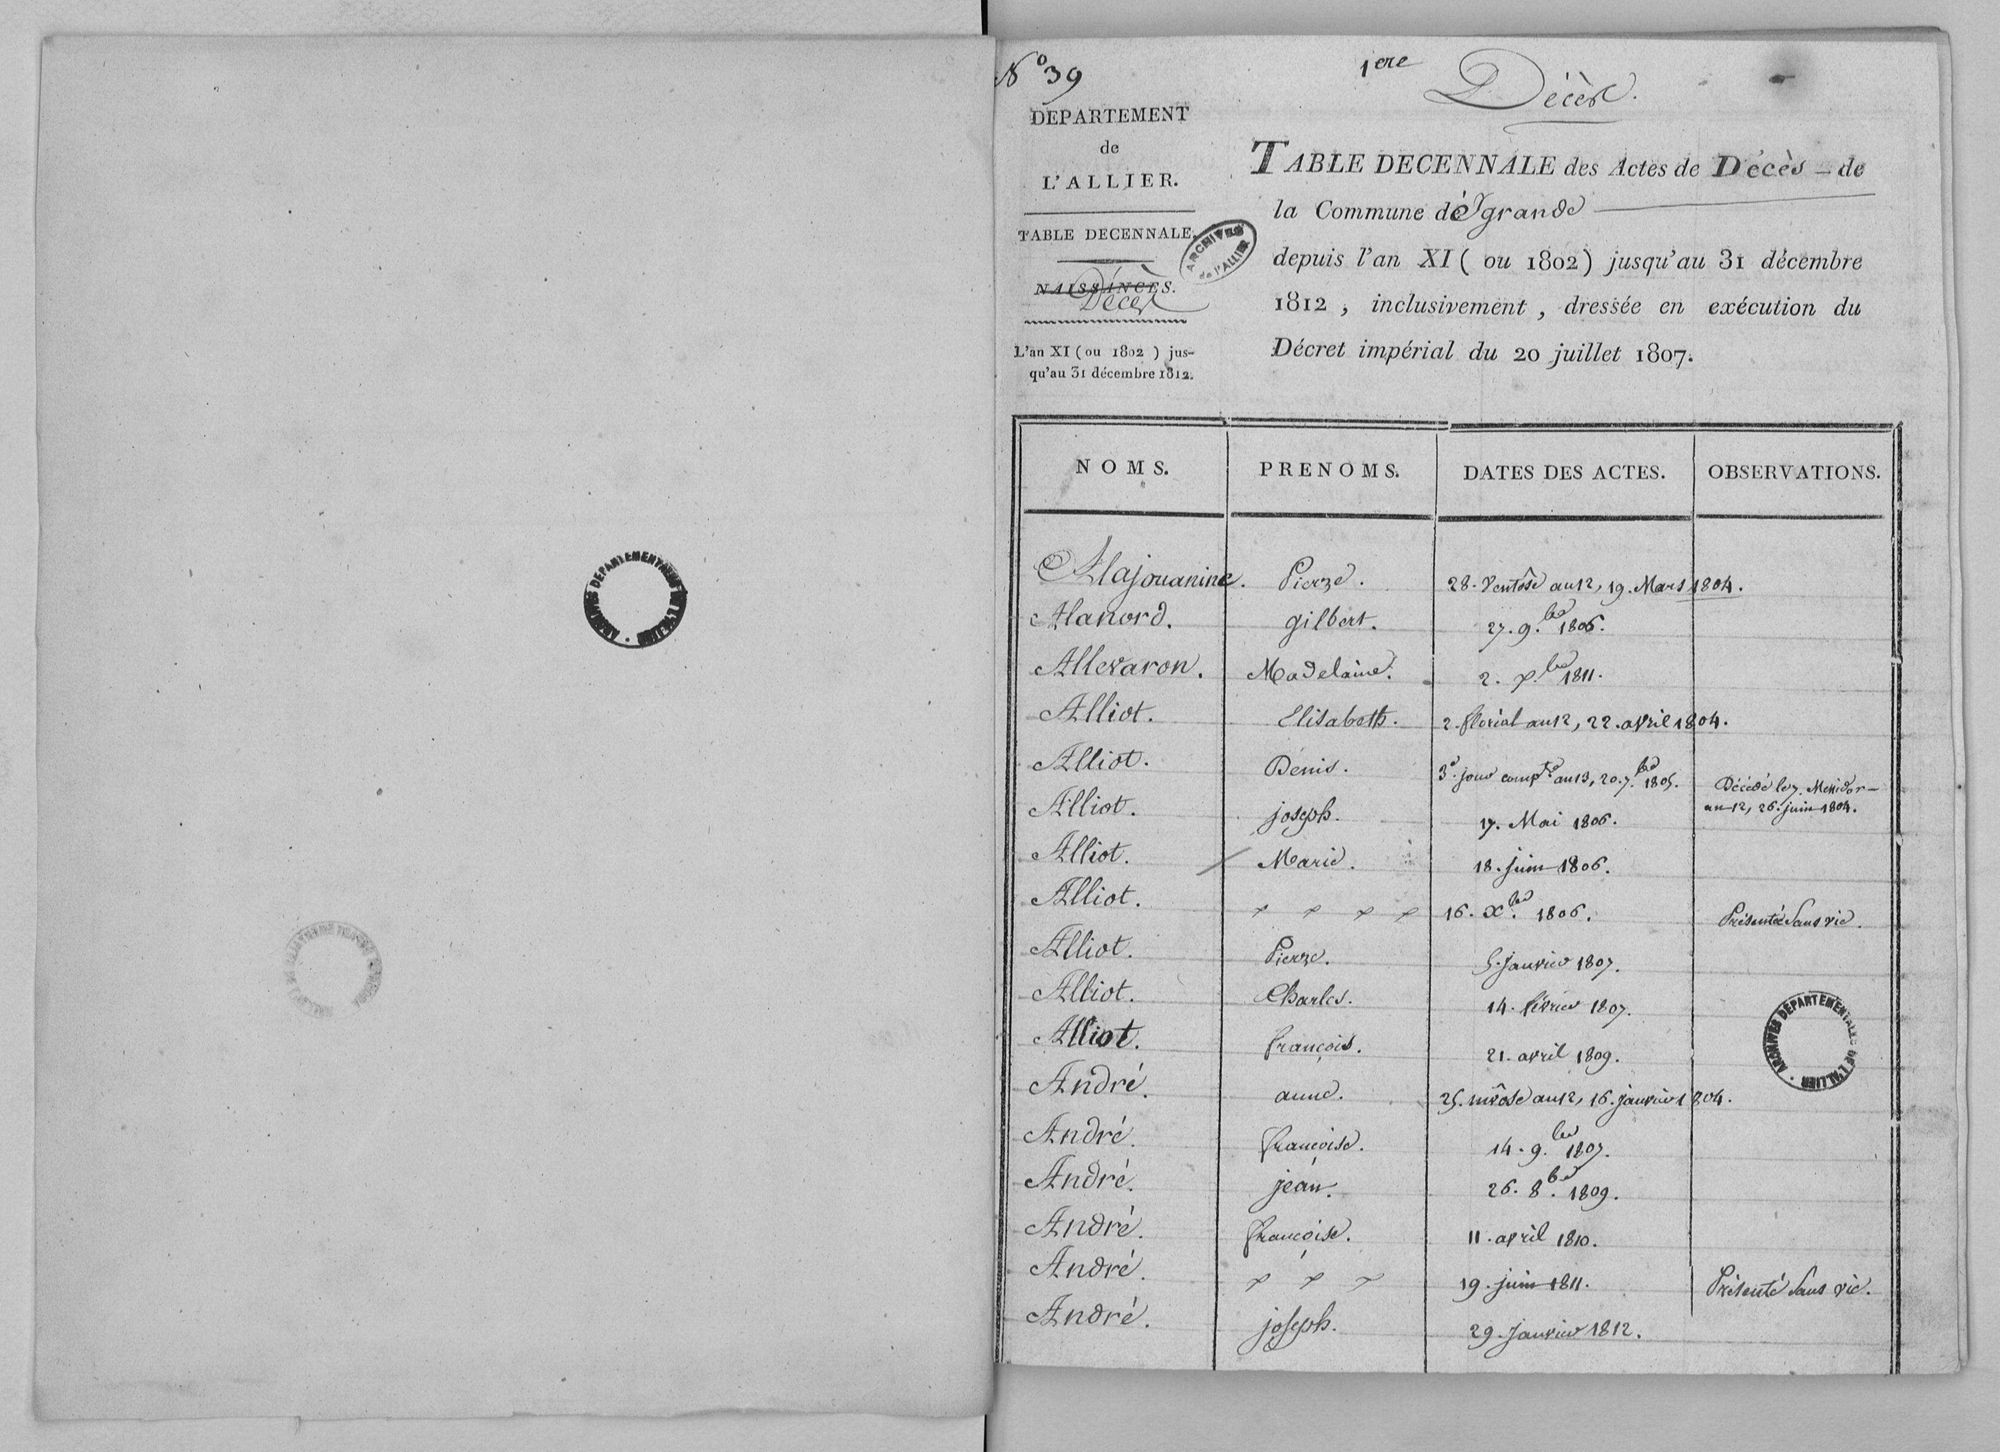 ARCHIVES DEPARTEMENTALES DE L'ALLIER
N° 39
1ere
Décès.
DEPARTEMENT
de
L'ALLIER.
TABLE DECENNALE.
NAISSANCES.
Décès
L'an XI (ou 1802) jus-
qu'au 31 décembre 1812.
ARCHIVES de l'ALLIER
TABLE DECENNALE des Actes de Décès - de
la Commune d'Ygrande
depuis l'an XI (ou 1802) jusqu'au 31 décembre
1812, inclusivement, dressée en exécution du
Décret impérial du 20 juillet 1807.
NOMS. PRENOMS. DATES DES ACTES. OBSERVATIONS.
Alajouanine. Pierre. 28. Ventôse an 12, 19. Mars 1804.
Alanord. gilbert. 27. 9.bre 1806.
Allevaron. Madelaine. 2. X.bre 1811.
Alliot. Elisabeth. 2. floréal an 12, 22. avril 1804.
Alliot. Dénis. 3e. jour compre. an 13, 20. 7.bre 1805. Décédé le 7. Messidor-
an 12, 26. juin 1804.
Alliot. joseph. 17. Mai 1806.
Alliot. Marie. 18. juin 1806.
Alliot. 16. X.bre 1806. Présentée Sans vie.
Alliot. Pierre. 5. Janvier 1807.
Alliot. Charles. 14. février 1807.
Alliot. françois. 21. avril 1809.
André. anne. 25. nivôse an 12, 16. janvier 1804.
André. françoise. 14. 9.bre 1807.
André. jean. 26. 8.bre 1809.
André. françoise. 11. avril 1810.
André. 19. juin 1811. Présenté Sans vie.
André. joseph. 29. Janvier 1812.
ARCHIVES DÉPARTEMENTALES DE L'ALLIER